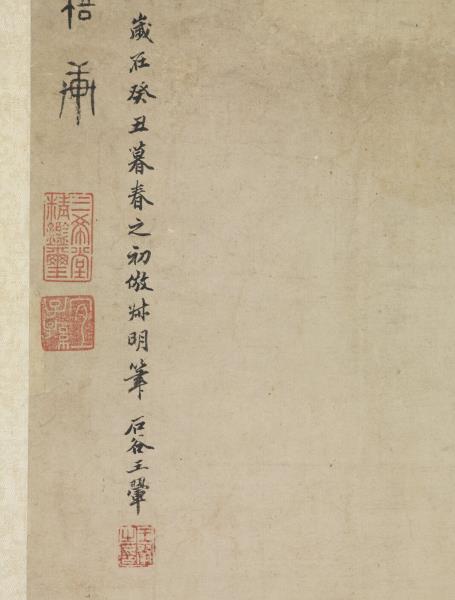 歲在癸丑暮春之初倣叔明筆 石谷王翬
王翬之印
三希堂精鑑璽
宜子孫